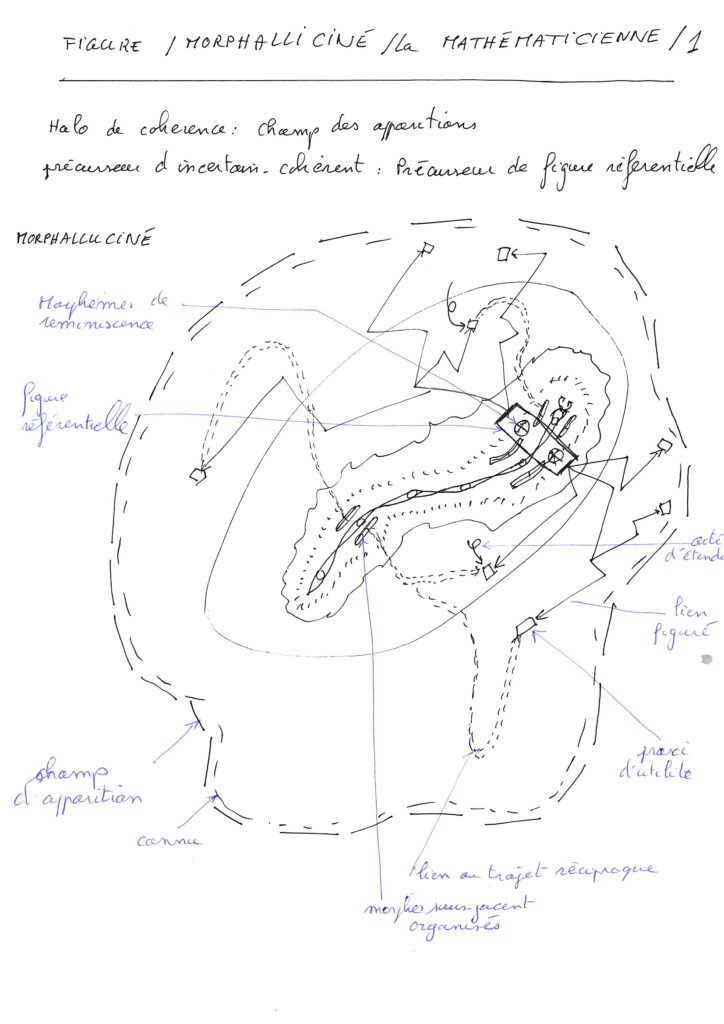 FIGURE / MORPHALLICINÉ / la MATHÉMATICIENNE / 1
Halo de coherence : champ des apparitions
précurseur d incertain-cohérent : Précurseur de figure référentielle
MORPHALLUCINÉ
Morphèmes de
reminiscence
figure
référentielle
acte
d'étendue
lien
figuré
champ
d'apparition
d'utilité
connu
lien ou trajet réciproque
morphes sous-jacent
organisés